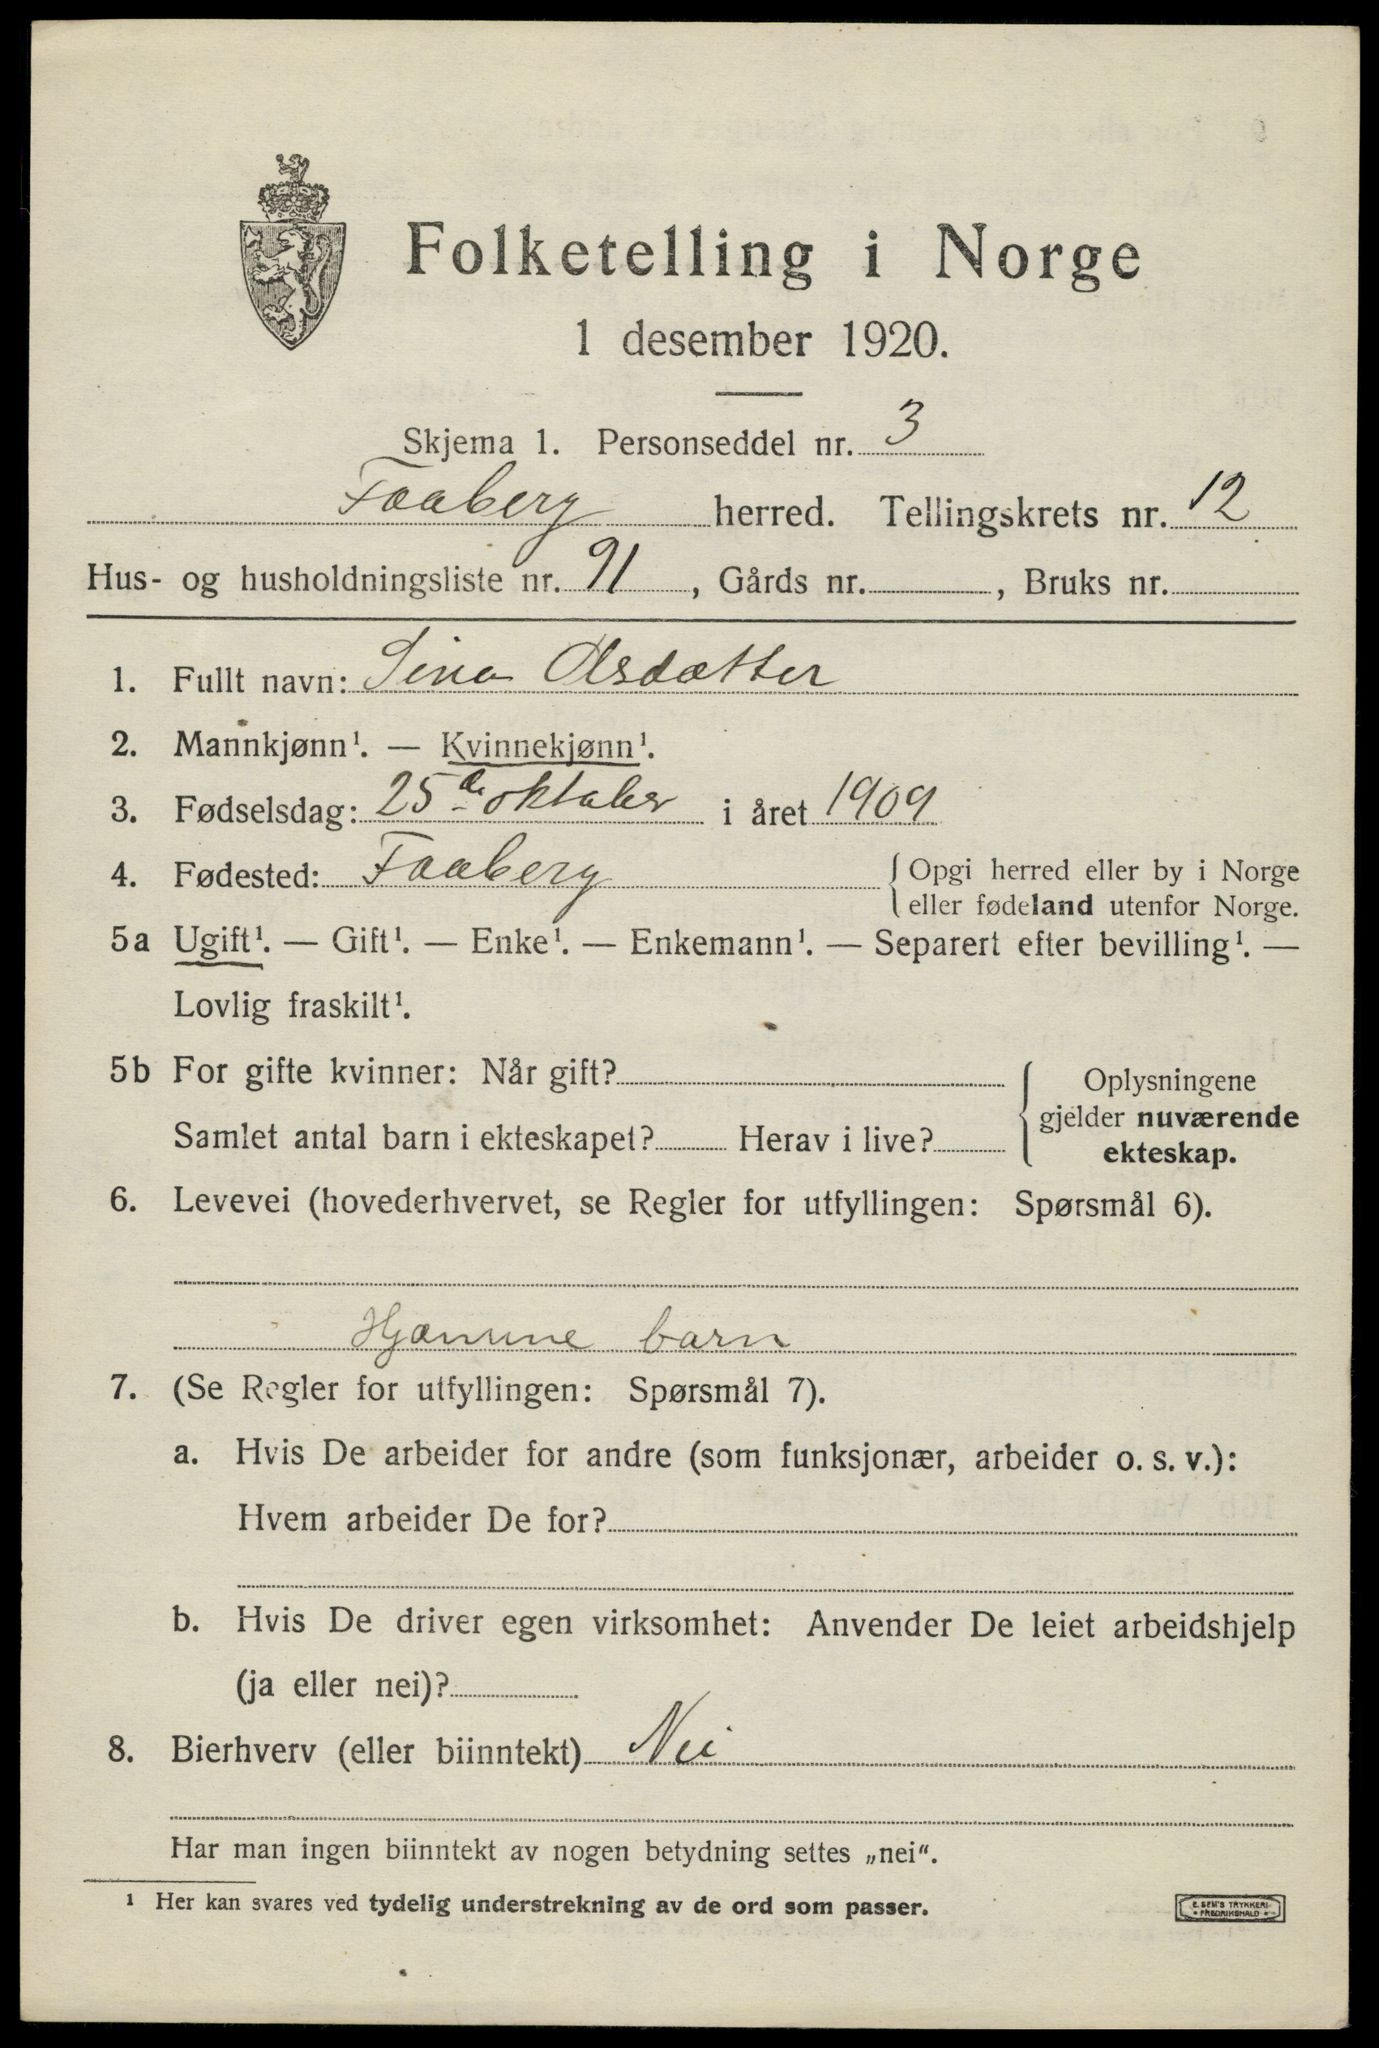 Folketelling i Norge
1 desember 1920.
Skjema 1. Personseddel nr. 3
Faaberg herred. Tellingskrets nr. 12
Hus- og husholdningsliste nr. 91, Gårds nr. , Bruks nr.
1. Fullt navn: Sina Olsdatter
2. Mannkjønn¹. — Kvinnekjønn¹.
3. Fødselsdag: 25de oktober i året 1909
4. Fødested: Faaberg { Opgi herred eller by i Norge
eller fødeland utenfor Norge.
5a Ugift¹. — Gift¹. — Enke¹. — Enkemann¹. — Separert efter bevilling¹. —
Lovlig fraskilt¹.
5b For gifte kvinner: Når gift?
Samlet antal barn i ekteskapet? Herav i live?
{ Oplysningene
gjelder nuværende
ekteskap.
6. Levevei (hovederhvervet, se Regler for utfyllingen: Spørsmål 6).
Hjemme barn
7. (Se Regler for utfyllingen: Spørsmål 7).
a. Hvis De arbeider for andre (som funksjonær, arbeider o. s. v.):
Hvem arbeider De for?
b. Hvis De driver egen virksomhet: Anvender De leiet arbeidshjelp
(ja eller nei)?
8. Bierhverv (eller biinntekt) Nei
Har man ingen biinntekt av nogen betydning settes „nei“.
¹ Her kan svares ved tydelig understrekning av de ord som passer.
E. SEM'S TRYKKERI
FREDRIKSHALD